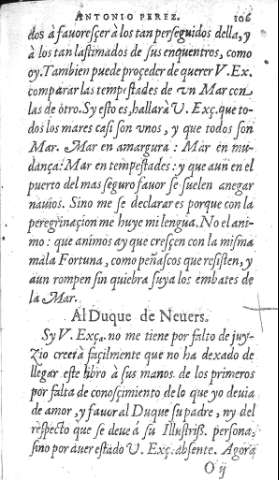 ANTONIO PEREZ. 106
dos à fauoresçer à los tan perseguidos della, y
à los tan lastimados de sus enquentros, como
oy. Tambien puede proçeder de querer V. Ex.
comparar las tempestades de vn Mar con
las de otro. Sy esto es, hallarà V. Exç. que to-
dos los mares casi son vnos, y que todos son
Mar. Mar en amargura: Mar en mu-
dança: Mar en tempestades: y que aun en el
puerto del mas seguro fauor se suelen anegar
nauios. Sino me se declarar es porque con la
peregrinaçion me huye mi lengua. No el ani-
mo: que animos ay que cresçen con la misma
mala Fortuna, como peñascos que resisten, y
aun rompen sin quiebra suya los embates de
la Mar.
Al Duque de Neuers.
Sy V. Exç.a no me tiene por falto de juy-
zio creerà façilmente que no ha dexado de
llegar este libro à sus manos de los primeros
por falta de conosçimiento de lo que yo deuia
de amor, y fauor al Duque su padre, ny del
respecto que se deue à su Illustriss. persona,
sino por auer estado V. Exç. absente. Agora
O ij